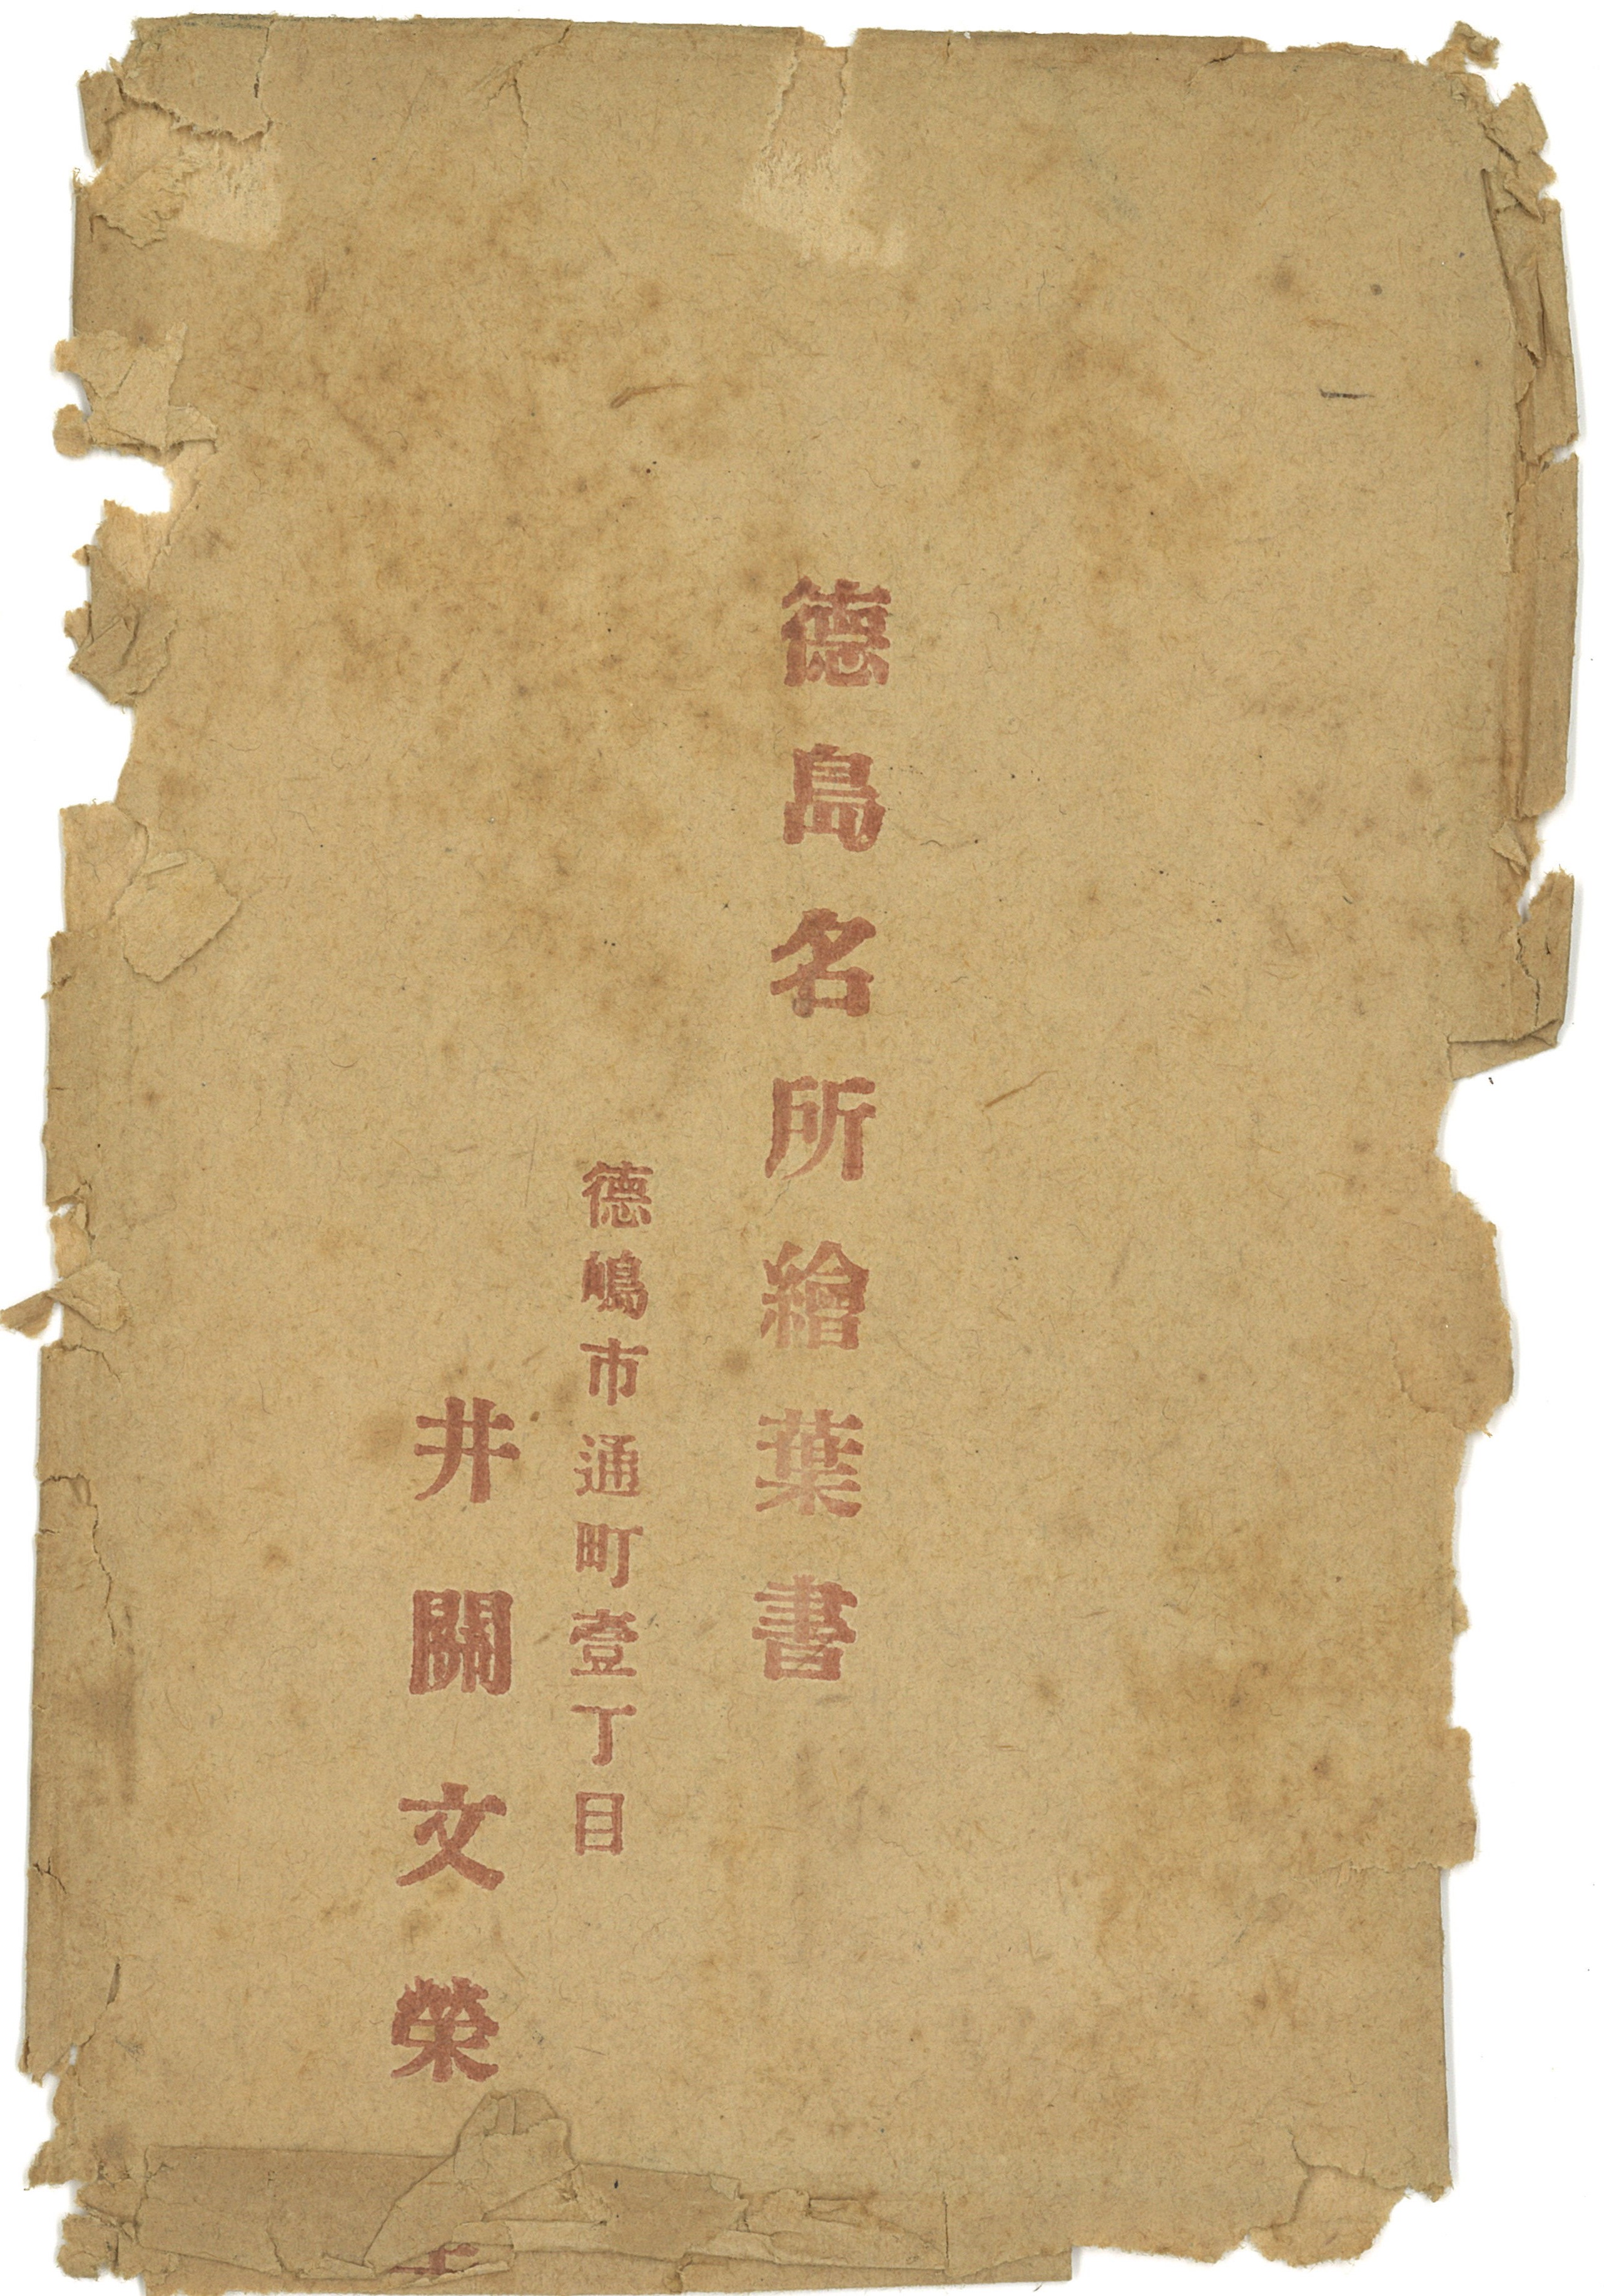 德島名所繪葉書
德嶋市通町壹丁目
井關文榮